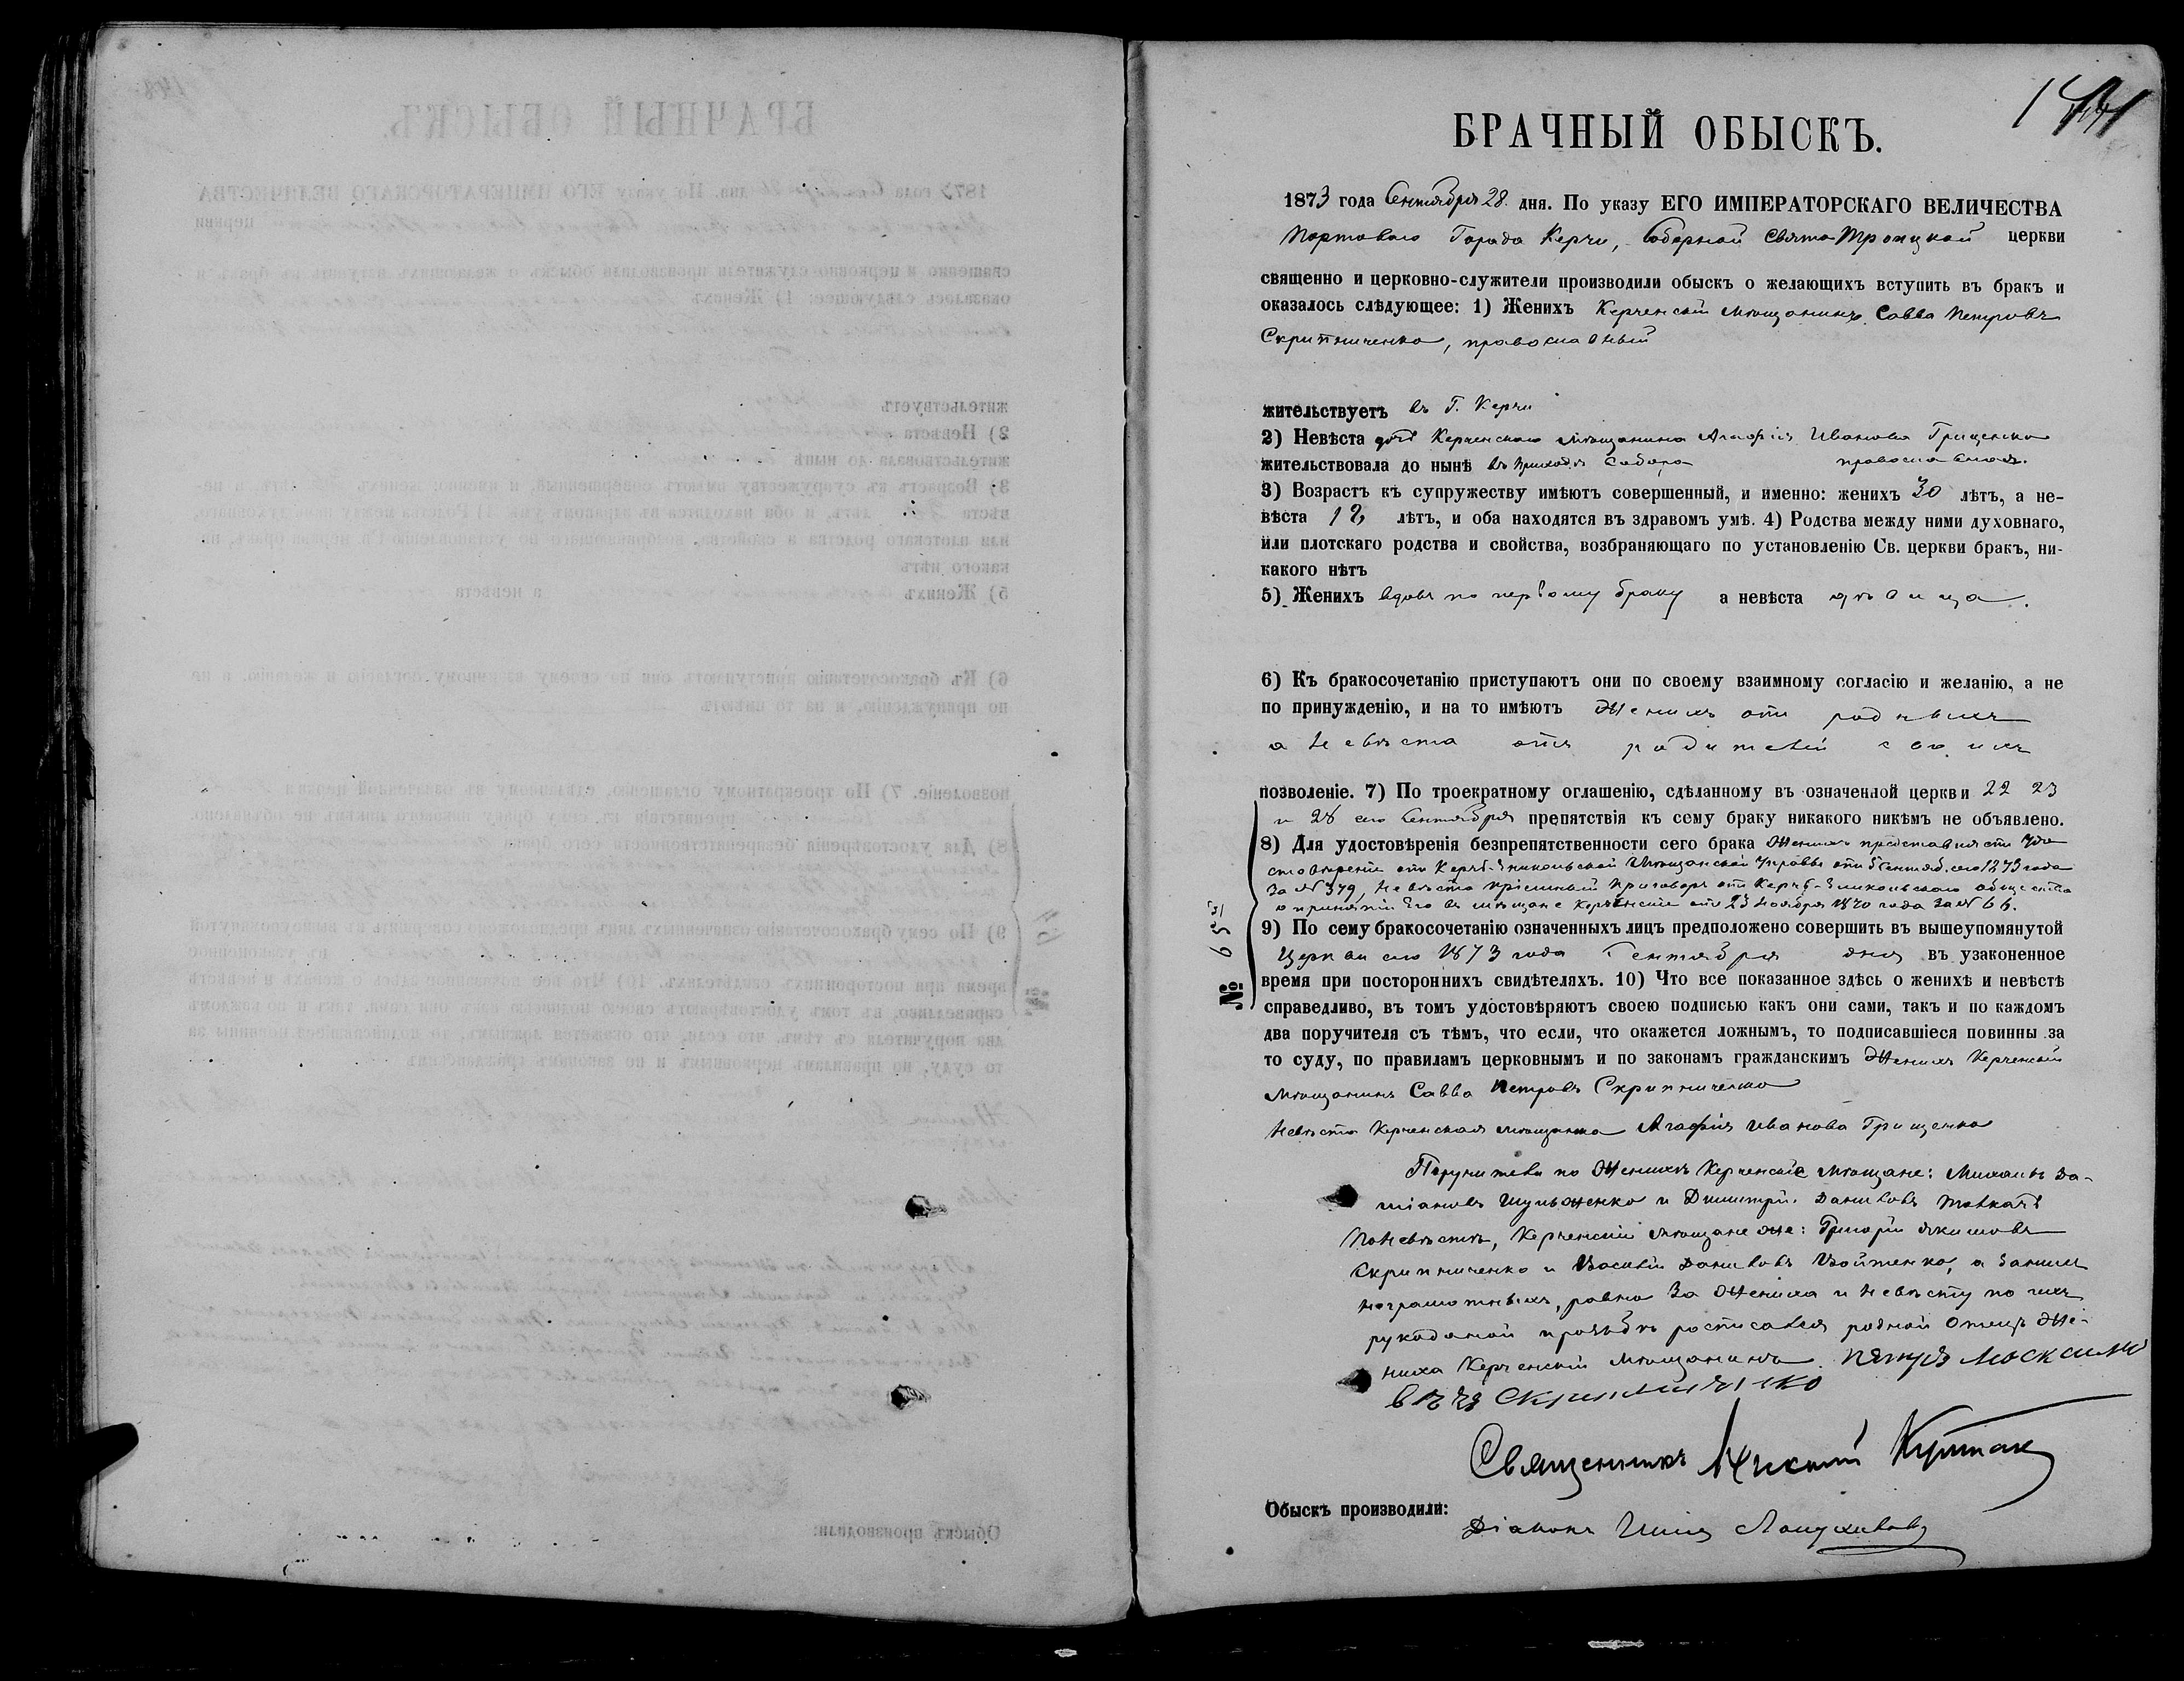 БРАЧНЫЙ ОБЫСКЪ.
1873 года Сентября 28 дня. По указу ЕГО ИМПЕРАТОРСКАГО ВЕЛИЧЕСТВА
Портоваго Города Керчи, Соборной Свято Троицкой церкви
священно и церковно-служители производили обыскъ о желающихъ вступить въ бракъ и
оказалось слѣдующее: 1) Женихъ Керченскій мѣщанинъ Савва Петровъ
Скрипниченко, православный
жительствуетъ въ Г. Керчи
2) Невѣста дочь Керченскаго мѣщанина Агафія Иванова Грищенко
жительствовала до нынѣ въ приходѣ Собора православная.
3) Возрастъ къ супружеству имѣютъ совершенный, и именно: женихъ 30 лѣтъ, а не-
вѣста 18 лѣтъ, и оба находятся въ здравомъ умѣ. 4) Родства между ними духовнаго,
или плотскаго родства и свойства, возбраняющаго по установленію Св. церкви бракъ, ни-
какого нѣтъ
5) Женихъ вдовъ по первому браку а невѣста дѣвица.
6) Къ бракосочетанію приступаютъ они по своему взаимному согласію и желанію, а не
по принужденію, и на то имѣютъ Женихъ отъ родныхъ
а Невѣста отъ родителей своихъ
позволеніе. 7) По троекратному оглашенію, сдѣланному въ означенной церкви 22 23
и 28 сего Сентября препятствія къ сему браку никакого никѣмъ не объявлено.
8) Для удостовѣренія безпрепятственности сего брака Женихъ представилъ Удо
стовѣреніе отъ Керчь-Эникольской Мѣщанской Управы отъ 5 Сентяб. сего 1873 года
За № 379, Невѣста пріемный приговоръ отъ Керчь-Эникольскаго общества
о принятіи Его въ мѣщане Керченскіе отъ 23 Ноября 1870 года За № 66.
№ 65
9) По сему бракосочетанію означенныхъ лицъ предположено совершить въ вышеупомянутой
Церкви сего 1873 года Сентября дня въ узаконенное
время при постороннихъ свидѣтеляхъ. 10) Что все показанное здѣсь о женихѣ и невѣстѣ
справедливо, въ томъ удостовѣряютъ своею подписью какъ они сами, такъ и по каждомъ
два поручителя съ тѣмъ, что если, что окажется ложнымъ, то подписавшіеся повинны за
то суду, по правиламъ церковнымъ и по законамъ гражданскимъ Женихъ Керченскій
мѣщанинъ Савва Петровъ Скрипниченко
Невѣста Керченская мѣщанка Агафія Иванова Грищенко
Поручители по Женихѣ Керченскіе Мѣщане: Михаилъ Да-
міановъ Шульженко и Димитрій Даниловъ Ткачъ
По Невѣстѣ, Керченскіи мѣщане же: Григорій Якимовъ
Скрипниченко и Василій Даниловъ Войтенко, а Занихъ
неграмотныхъ, равно За Жениха и Невѣсту по ихъ
рукоданой прозьбѣ росписался родной Отецъ Же-
ниха Керченскій Мѣщанинъ Пятръ Москсимо
вичъ Скрипниченко
Священникъ Купчак
Обыскъ производили:
Діаконъ